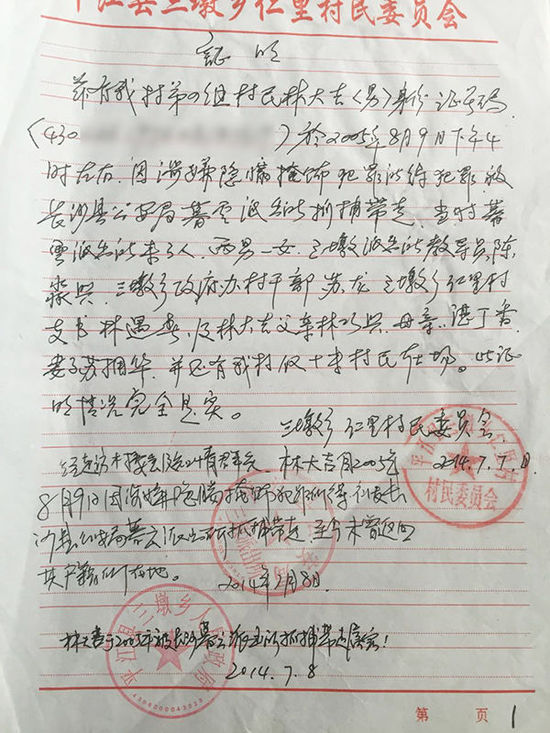 平江县三墩乡仁里村民委员会
证明
兹有我村第四组村民林大吉(男)身份证号码
(430 )于2005年8月9日下午4
时左右,因涉嫌隐瞒掩饰犯罪所得犯罪被
长沙县公安局暮云派出所抓捕带走,当时暮
云派出所来了3人,两男一女,三墩派出所教导员陈
兴,三墩乡政府办村干部苏龙,三墩乡仁里村
支书林遇春,及林大吉父亲林以兴,母亲湛丁香
妻子苏拥华,并还有我村仅十来村民在场。此证
明情况完全是实。
三墩乡仁里村民委员会
2014.7.7日
林大吉自2005年
8月9日因涉嫌隐瞒掩饰犯罪所得被长
沙县公安局暮云派出所抓捕带走至今未曾返回
其户籍所在地。
2014年7月8日
林大吉于2005年被长沙暮云派出所抓捕带走属实!
2014.7.8
三墩乡人民政府
村民委员会
第 页 1